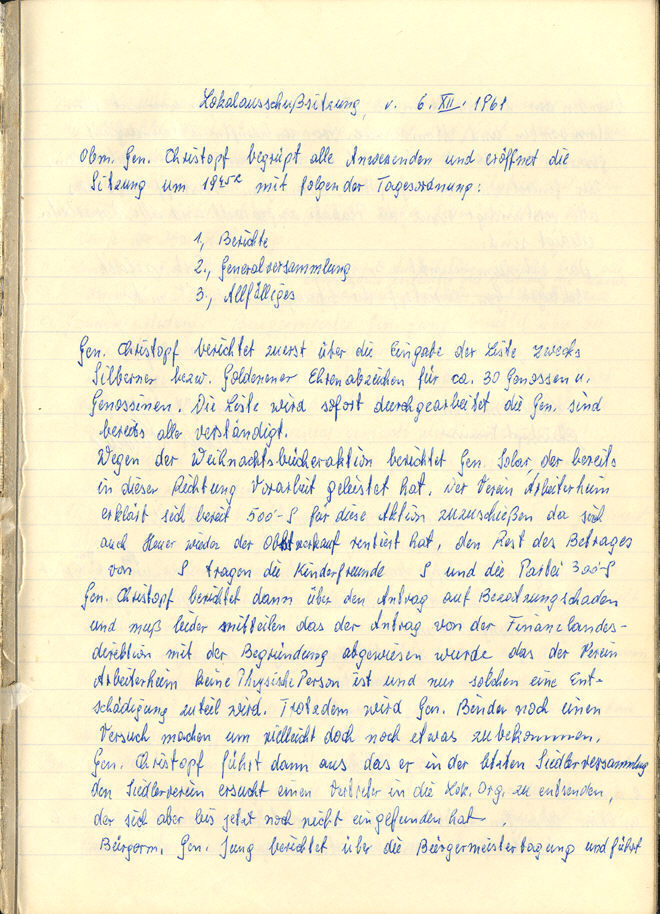 Lokalausschußsitzung, v. 6. XII. 1961
Obm. Gen. Christopf begrüßt alle Anwesenden und eröffnet die
Sitzung um 19 45h mit folgender Tagesordnung:
1, Berichte
2., Generalversammlung
3., Allfälliges
Gen. Christopf berichtet zuerst über die Eingabe der Liste zwecks
Silberner bezw. Goldenener Ehrenabzeichen für ca. 30 Genossen u.
Genossinen. Die Liste wird sofort durchgearbeitet die Gen. sind
bereits alle verständigt.
Wegen der Weihnachtsbücheraktion berichtet Gen. Solar, der bereits
in dieser Richtung Vorarbeit geleistet hat. Der Verein Arbeiterheim
erklärt sich bereit 500'-S für diese Aktion zuzuschießen da sich
auch Heuer wieder der Obstverkauf rentiert hat, den Rest des Betrages
von S tragen die Kinderfreunde S und die Partei 300'-S
Gen. Christopf berichtet dann über den Antrag auf Besatzungschaden
und muß leider mitteilen das der Antrag von der Finanzlandes-
direktion mit der Begründung abgewiesen wurde das der Verein
Arbeiterheim keine Physische Person ist und nur solchen eine Ent-
schädigung zuteil wird. Trotzdem wird Gen. Binder noch einen
Versuch machen um vielleicht doch noch etwas zubekommen.
Gen. Christopf führt dann aus das er in der letzten Siedlerversammlung
den Siedlerverein ersucht einen Vertreter in die Lok. Org. zu entsenden,
der sich aber bis jetzt noch nicht eingefunden hat
Bürgerm. Gen. Jung berichtet über die Bürgermeistertagung und führt